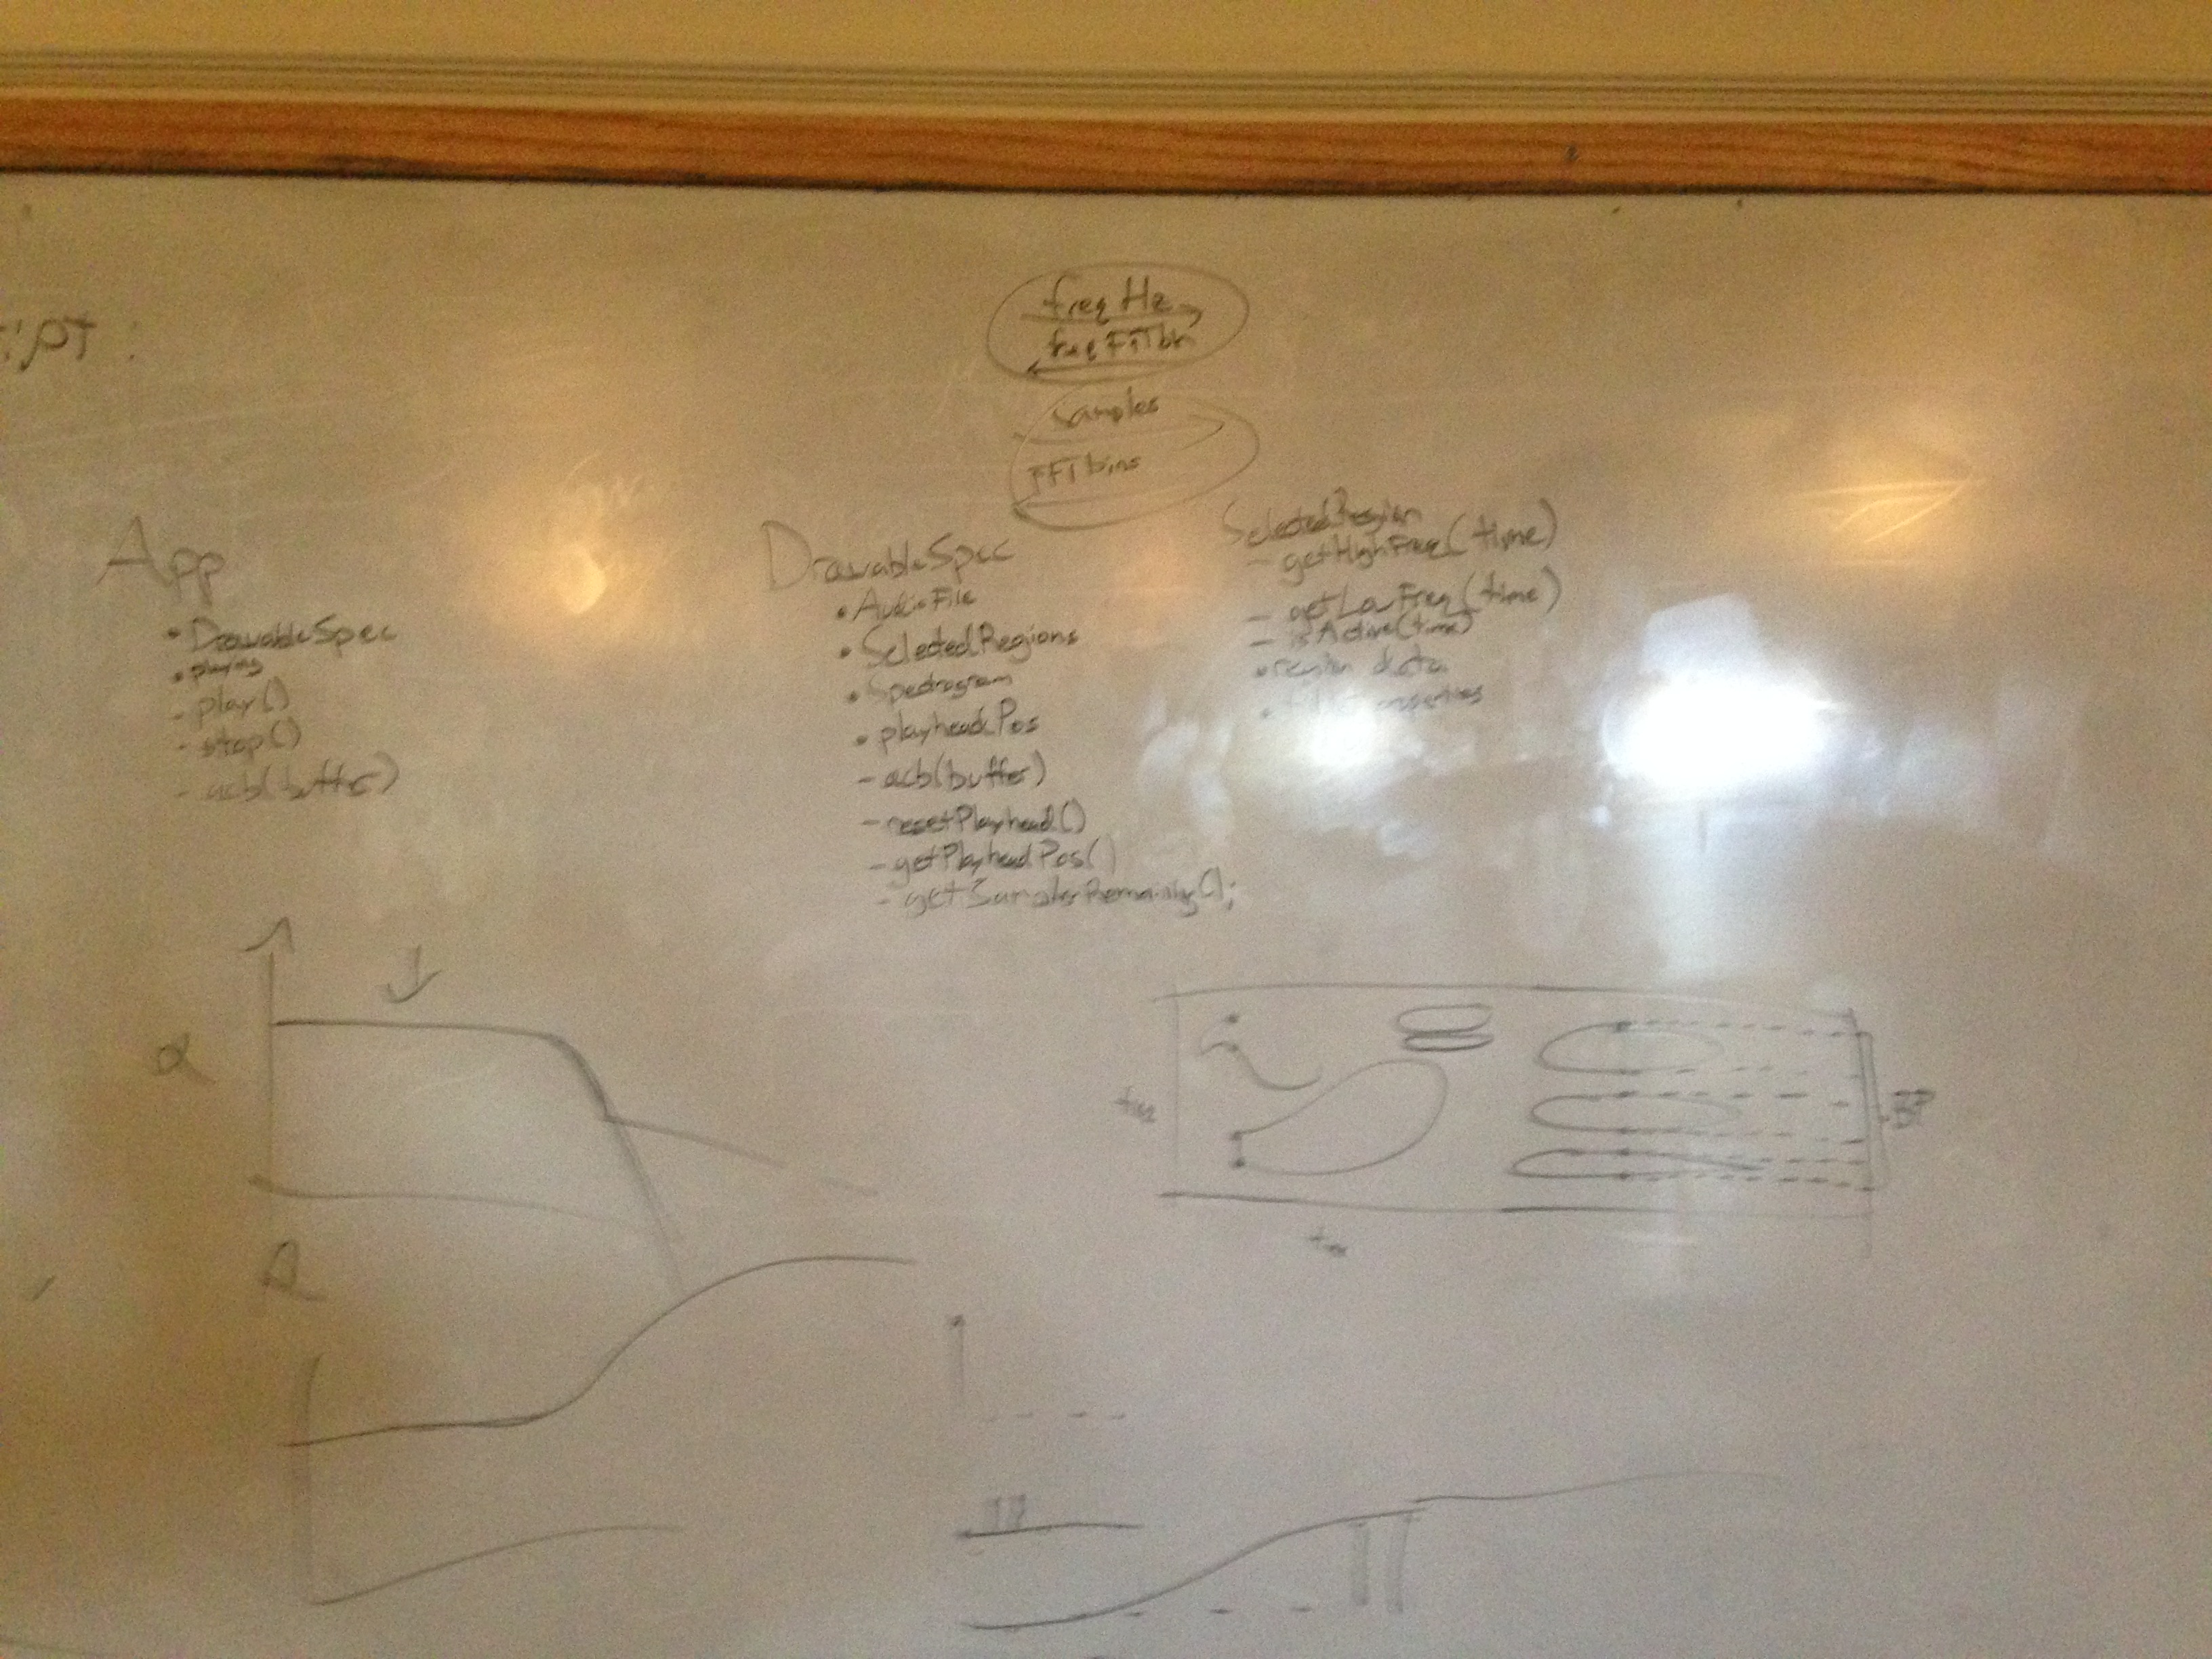 freq Hz
freq FFTbin
Samples
FFTbins
App
• DrawableSpec
• playing
- play()
- stop()
- acb(buffer)
DrawableSpec
• AudioFile
• SelectedRegions
• Spectrogram
• playheadPos
- acb(buffer)
- resetPlayhead()
- getPlayheadPos()
- getSamplesRemaining();
SelectedRegion
- getHighFreq(time)
- getLowFreq(time)
- isActive(time)
• region data
α
freq
time